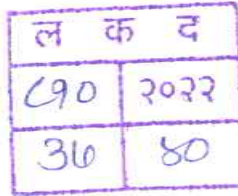 ल क द
८९० २०२२
३७ ४०